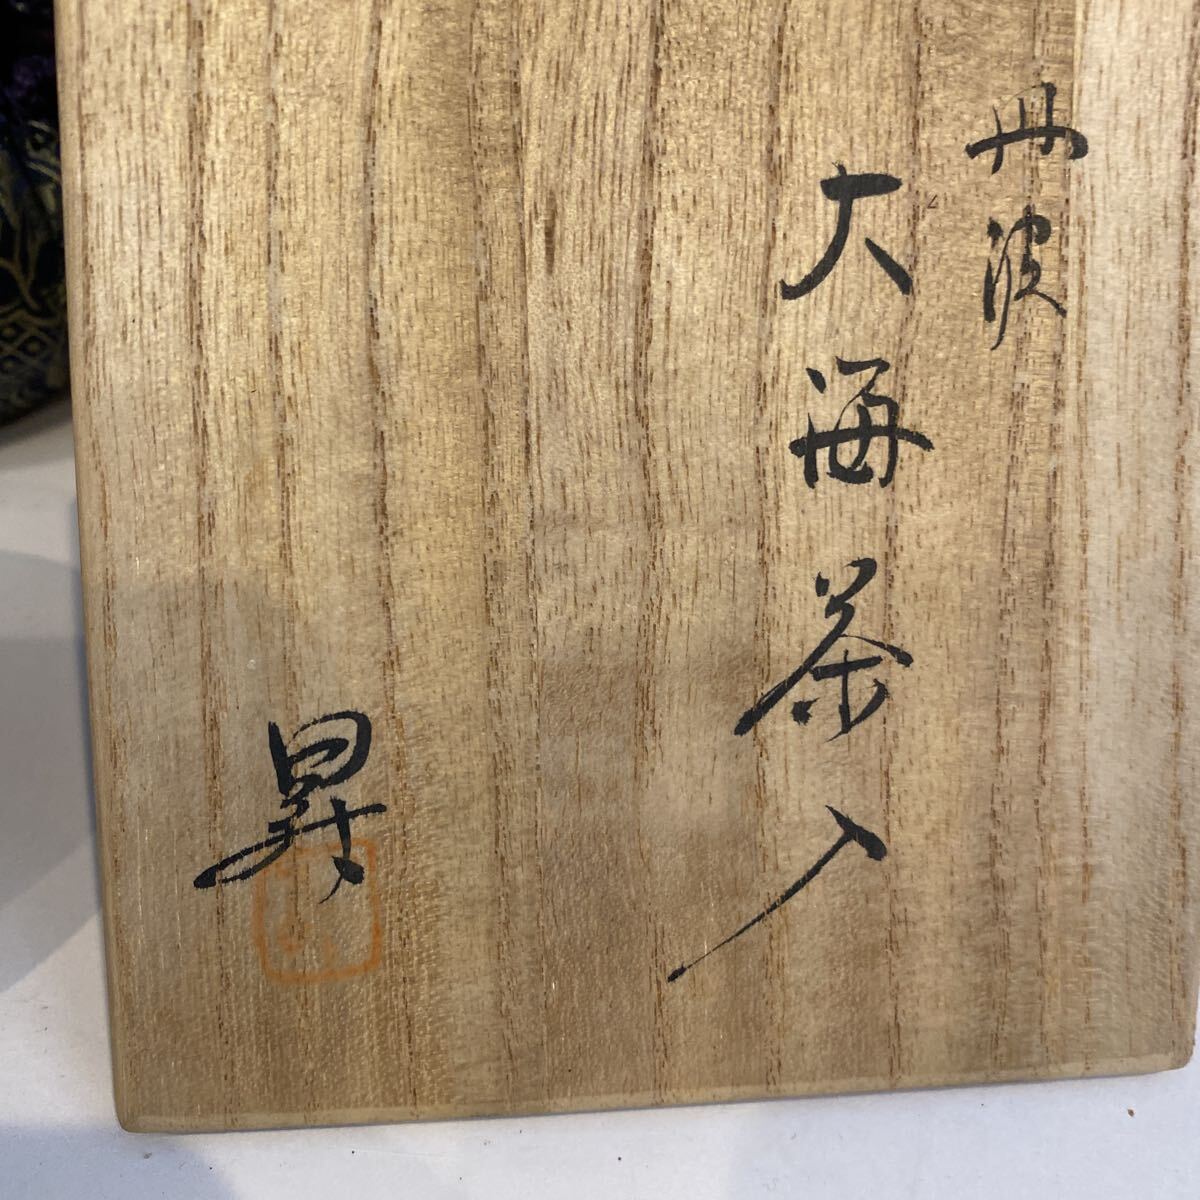 丹波
大海茶入
昇